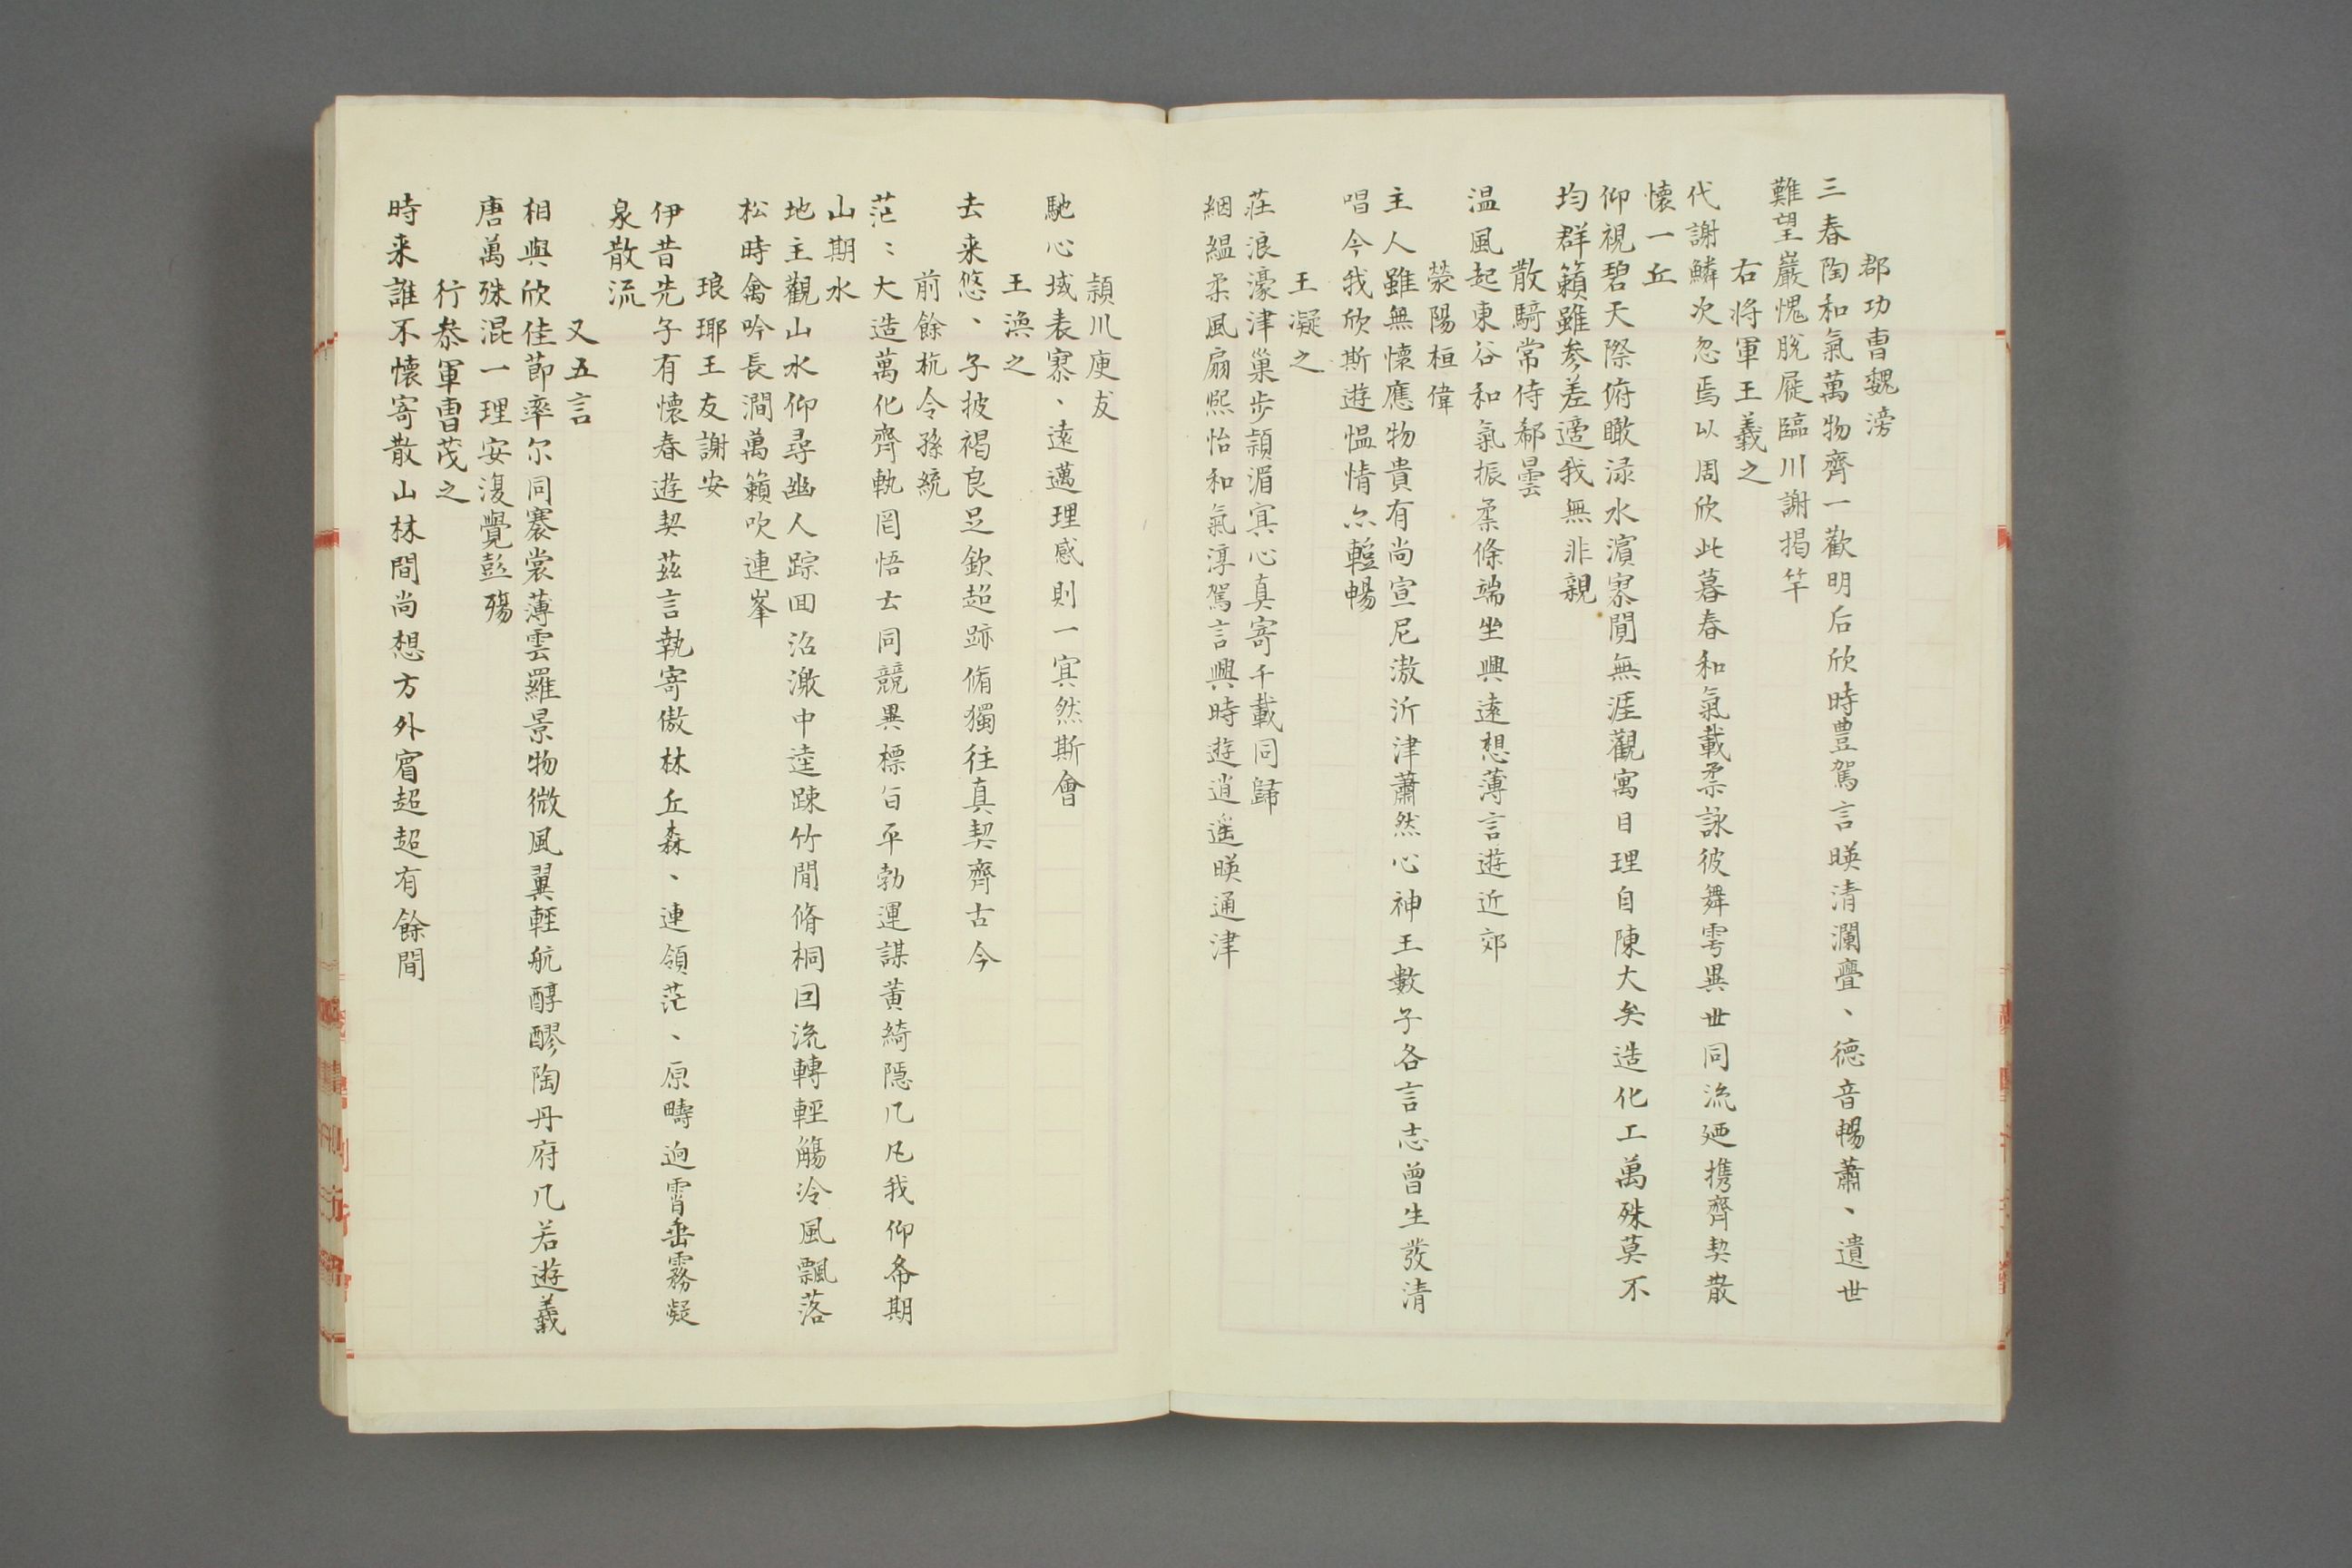 郡功曹魏滂
三春陶和氣萬物齊一歡明后欣時豊駕言暎清瀾亹、德音暢蕭、遺世
難望巖愧脫屣臨川謝揭竿
右将軍王羲之
代謝鱗次忽焉以周欣此暮春和氣載柔詠彼舞雩異丗同流廼携齊契散
懷一丘
仰視碧天際俯瞰渌水濵寥閴無涯觀寓目理自陳大矣造化工萬殊莫不
均群籟雖参差適我無非親
散騎常侍郗曇
温風起東谷和氣振柔條端坐興遠想薄言遊近郊
滎陽桓偉
主人雖無懷應物貴有尚宣尼遨沂津蕭然心神王數子各言志曾生發清
唱今我欣斯遊愠情亦蹔暢
王凝之
荘浪濠津巢步潁湄㝠心真寄千載同歸
絪緼柔風扇熈怡和氣淳駕言興時遊逍遥暎通津
潁川庾友
馳心域表寥、遠邁理感則一㝠然斯會
王渙之
去来悠、子披褐良足欽超跡脩獨往真契齊古今
前餘杭令孫統
茫〻大造萬化齊軌罔悟玄同競異標旨平勃運謀黃綺隱几凡我仰希期
山期水
地主觀山水仰尋幽人踪囬沼激中逵踈竹閒脩桐回流轉輕觴泠風飄落
松時禽吟長澗萬籟吹連峯
琅琊王友謝安
伊昔先子有懷春遊契茲言執寄傲林丘森、連領茫、原疇逈霄垂霧凝
泉散流
又五言
相與欣佳節率尔同褰裳薄雲羅景物微風翼輕航醇醪陶丹府凡若遊羲
唐萬殊混一理安復覺彭殤
行叅軍曹茂之
時来誰不懷寄散山林間尚想方外賓超超有餘閒